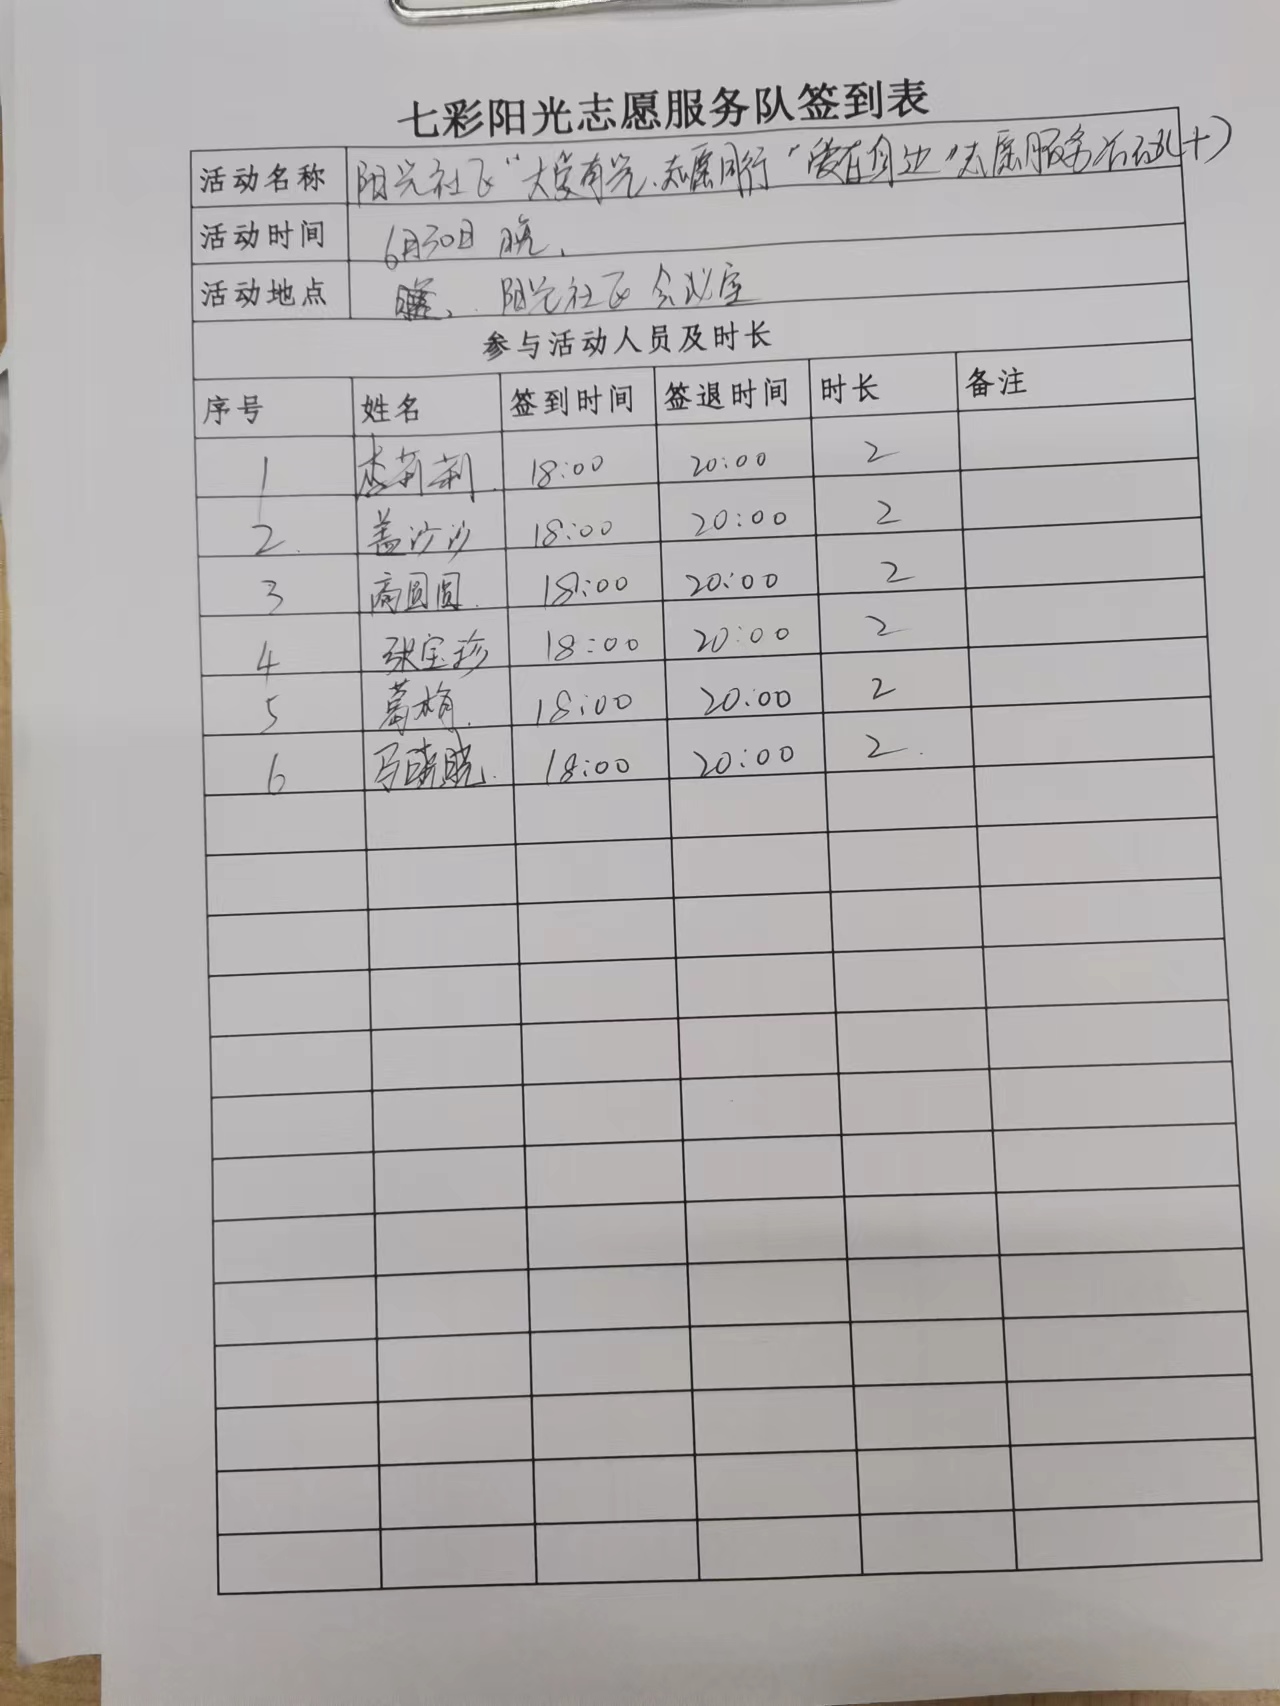 七彩阳光志愿服务队签到表
活动名称 阳光社区“大爱有光、志愿同行”“爱在身边”志愿服务活动(十)
活动时间 6月30日 晚、
活动地点 阳光社区会议室
参与活动人员及时长
序号 姓名 签到时间 签退时间 时长 备注
1 李莉莉 18:00 20:00 2
2. 盖沙沙 18:00 20:00 2
3 商圆圆. 18:00 20:00 2
4 张宝珍 18:00 20:00 2
5 葛梅. 18:00 20:00 2
6 马晓晓. 18:00 20:00 2.